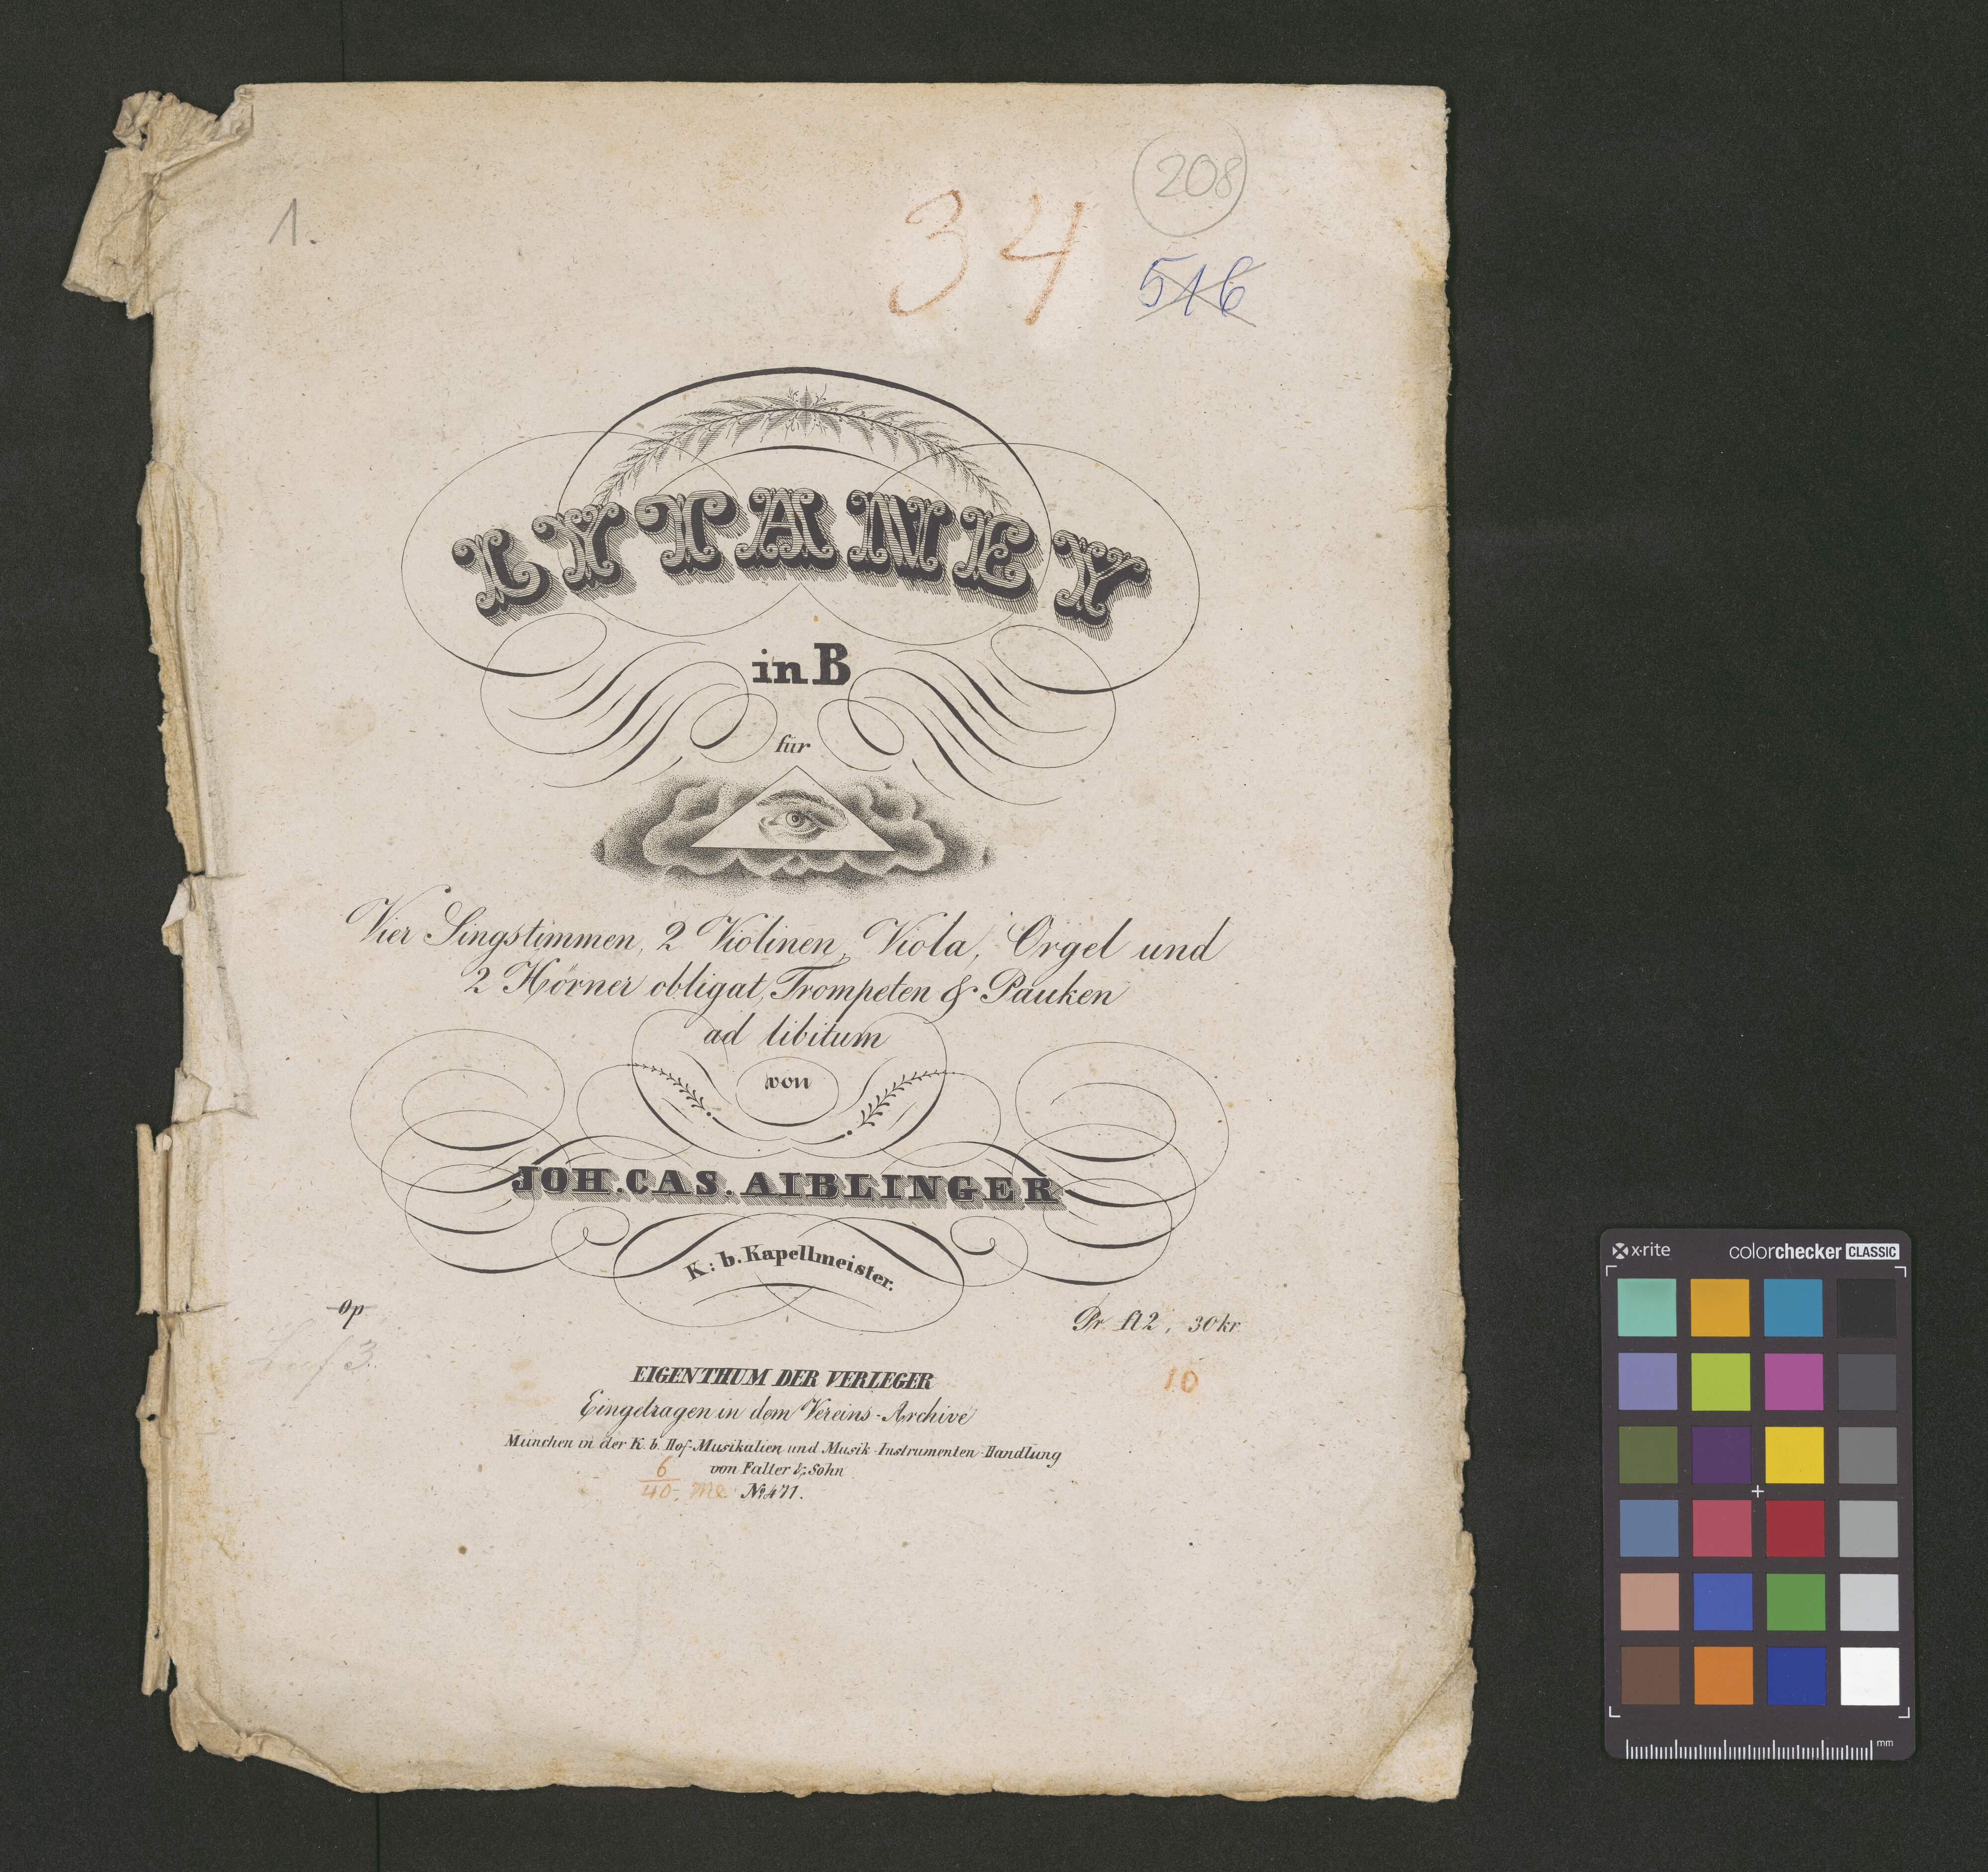 1.
34
208
516
LYTANEY
in B
für
Vier Singstimmen, 2 Violinen, Viola, Orgel und
2 Hörner obligat, Trompeten & Pauken
ad libitum
von
JOH. CAS. AIBLINGER
K: b. Kapellmeister.
Op
Pr. fl 2, 30 kr.
10
EIGENTHUM DER VERLEGER
Eingetragen in dem Vereins-Archive
München in der K. b. Hof-Musikalien und Musik-Instrumenten-Handlung
von Falter & Sohn
6
40.
No. 471.
x-rite
colorchecker CLASSIC
mm